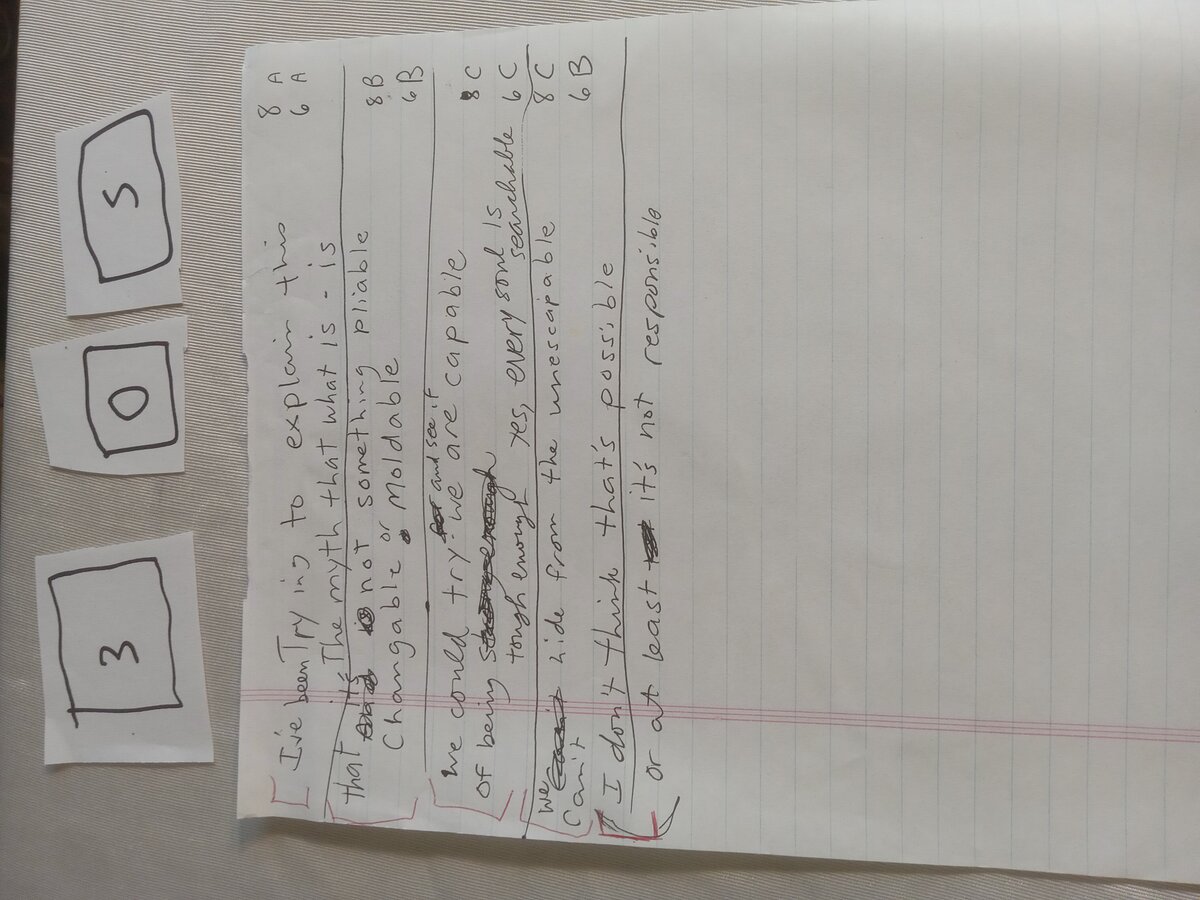 3 0 5
I've been Trying to explain this 8 A
that its The myth that what is - is 6 A
not something pliable 8 B
Changable or Moldable 6 B
We could try and see if we are capable 8 C
of being tough enough yes, every soul is searchable 6 C
We can't hide from the unescapable 8 C
I don't think that's possible 6 B
or at least it's not responsible